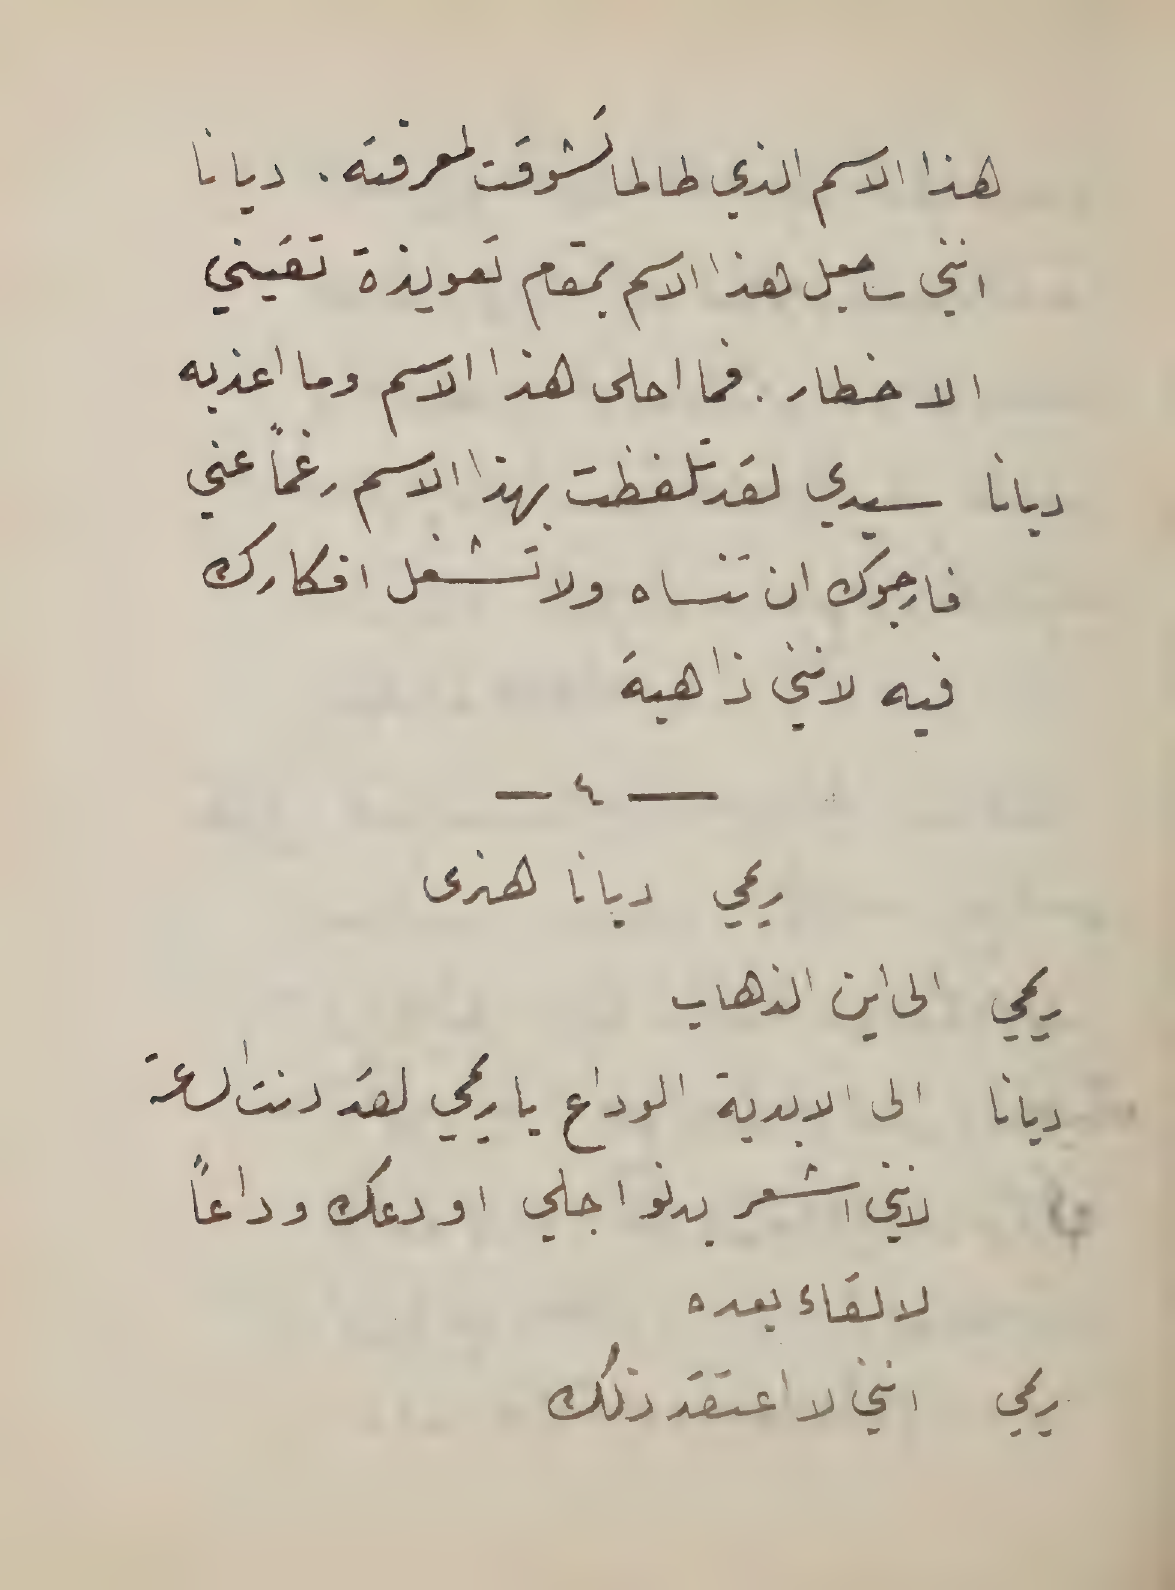 هذا الاسم الذي طالما تشوقت لمعرفته . ديانا
انني ساجعل هذا الاسم بمقام تعويذة تقيني
الاخطار . فما احلى هذا الاسم وما اعذبه
ديانا سيدي لقد تلفظت بهذا الاسم رغماً عني
فارجوك ان تنساه ولا تشغل افكارك
فيه لانني ذاهبة
— ٤ —
ريمي ديانا هنرى
ريمي الى اين الذهاب
ديانا الى الابدية الوداع يا ريمي لقد دنت الساعة
لانني اشعر بدنو اجلي اودعك وداعاً
لا لقاء بعده
ريمي انني لا اعتقد ذلك